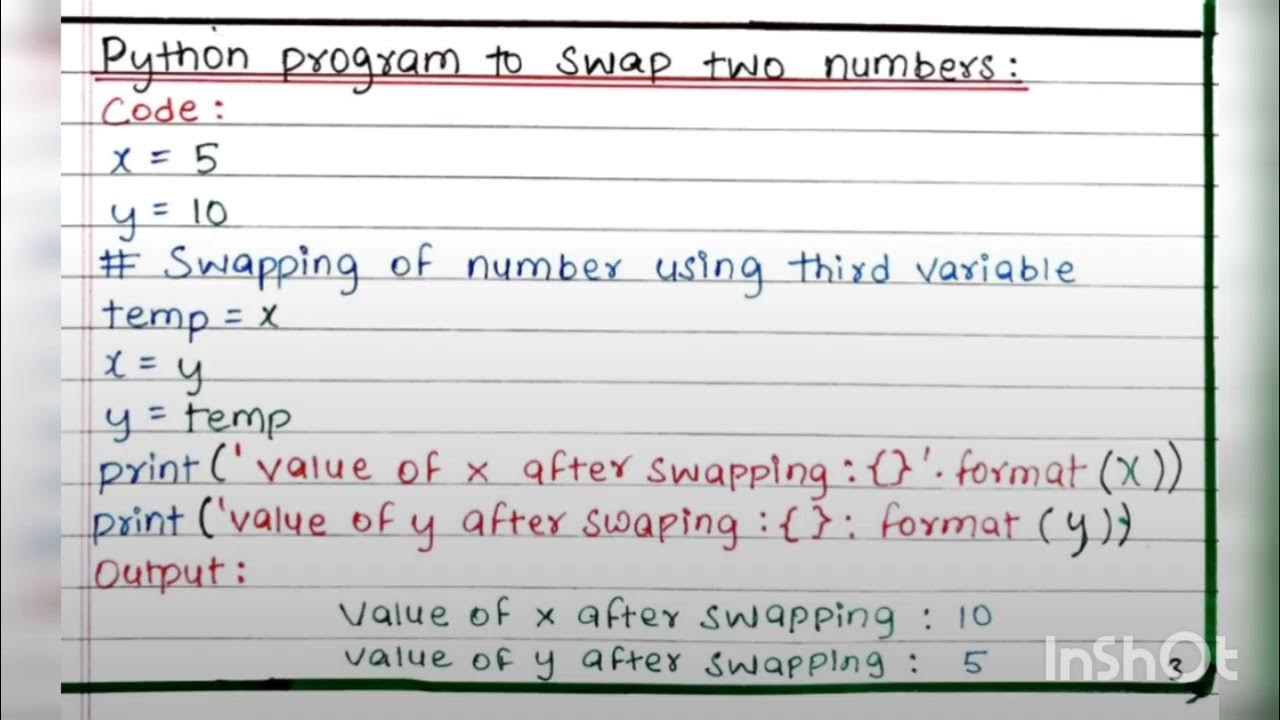 Python program to swap two numbers:
Code:
x = 5
y = 10
# Swapping of number using third variable
temp = x
x = y
y = temp
print ('value of x after swapping : {}'. format (x))
print ('value of y after swaping : { } : format (y))
Output:
Value of x after swapping : 10
value of y after swapping : 5
3
InShOt